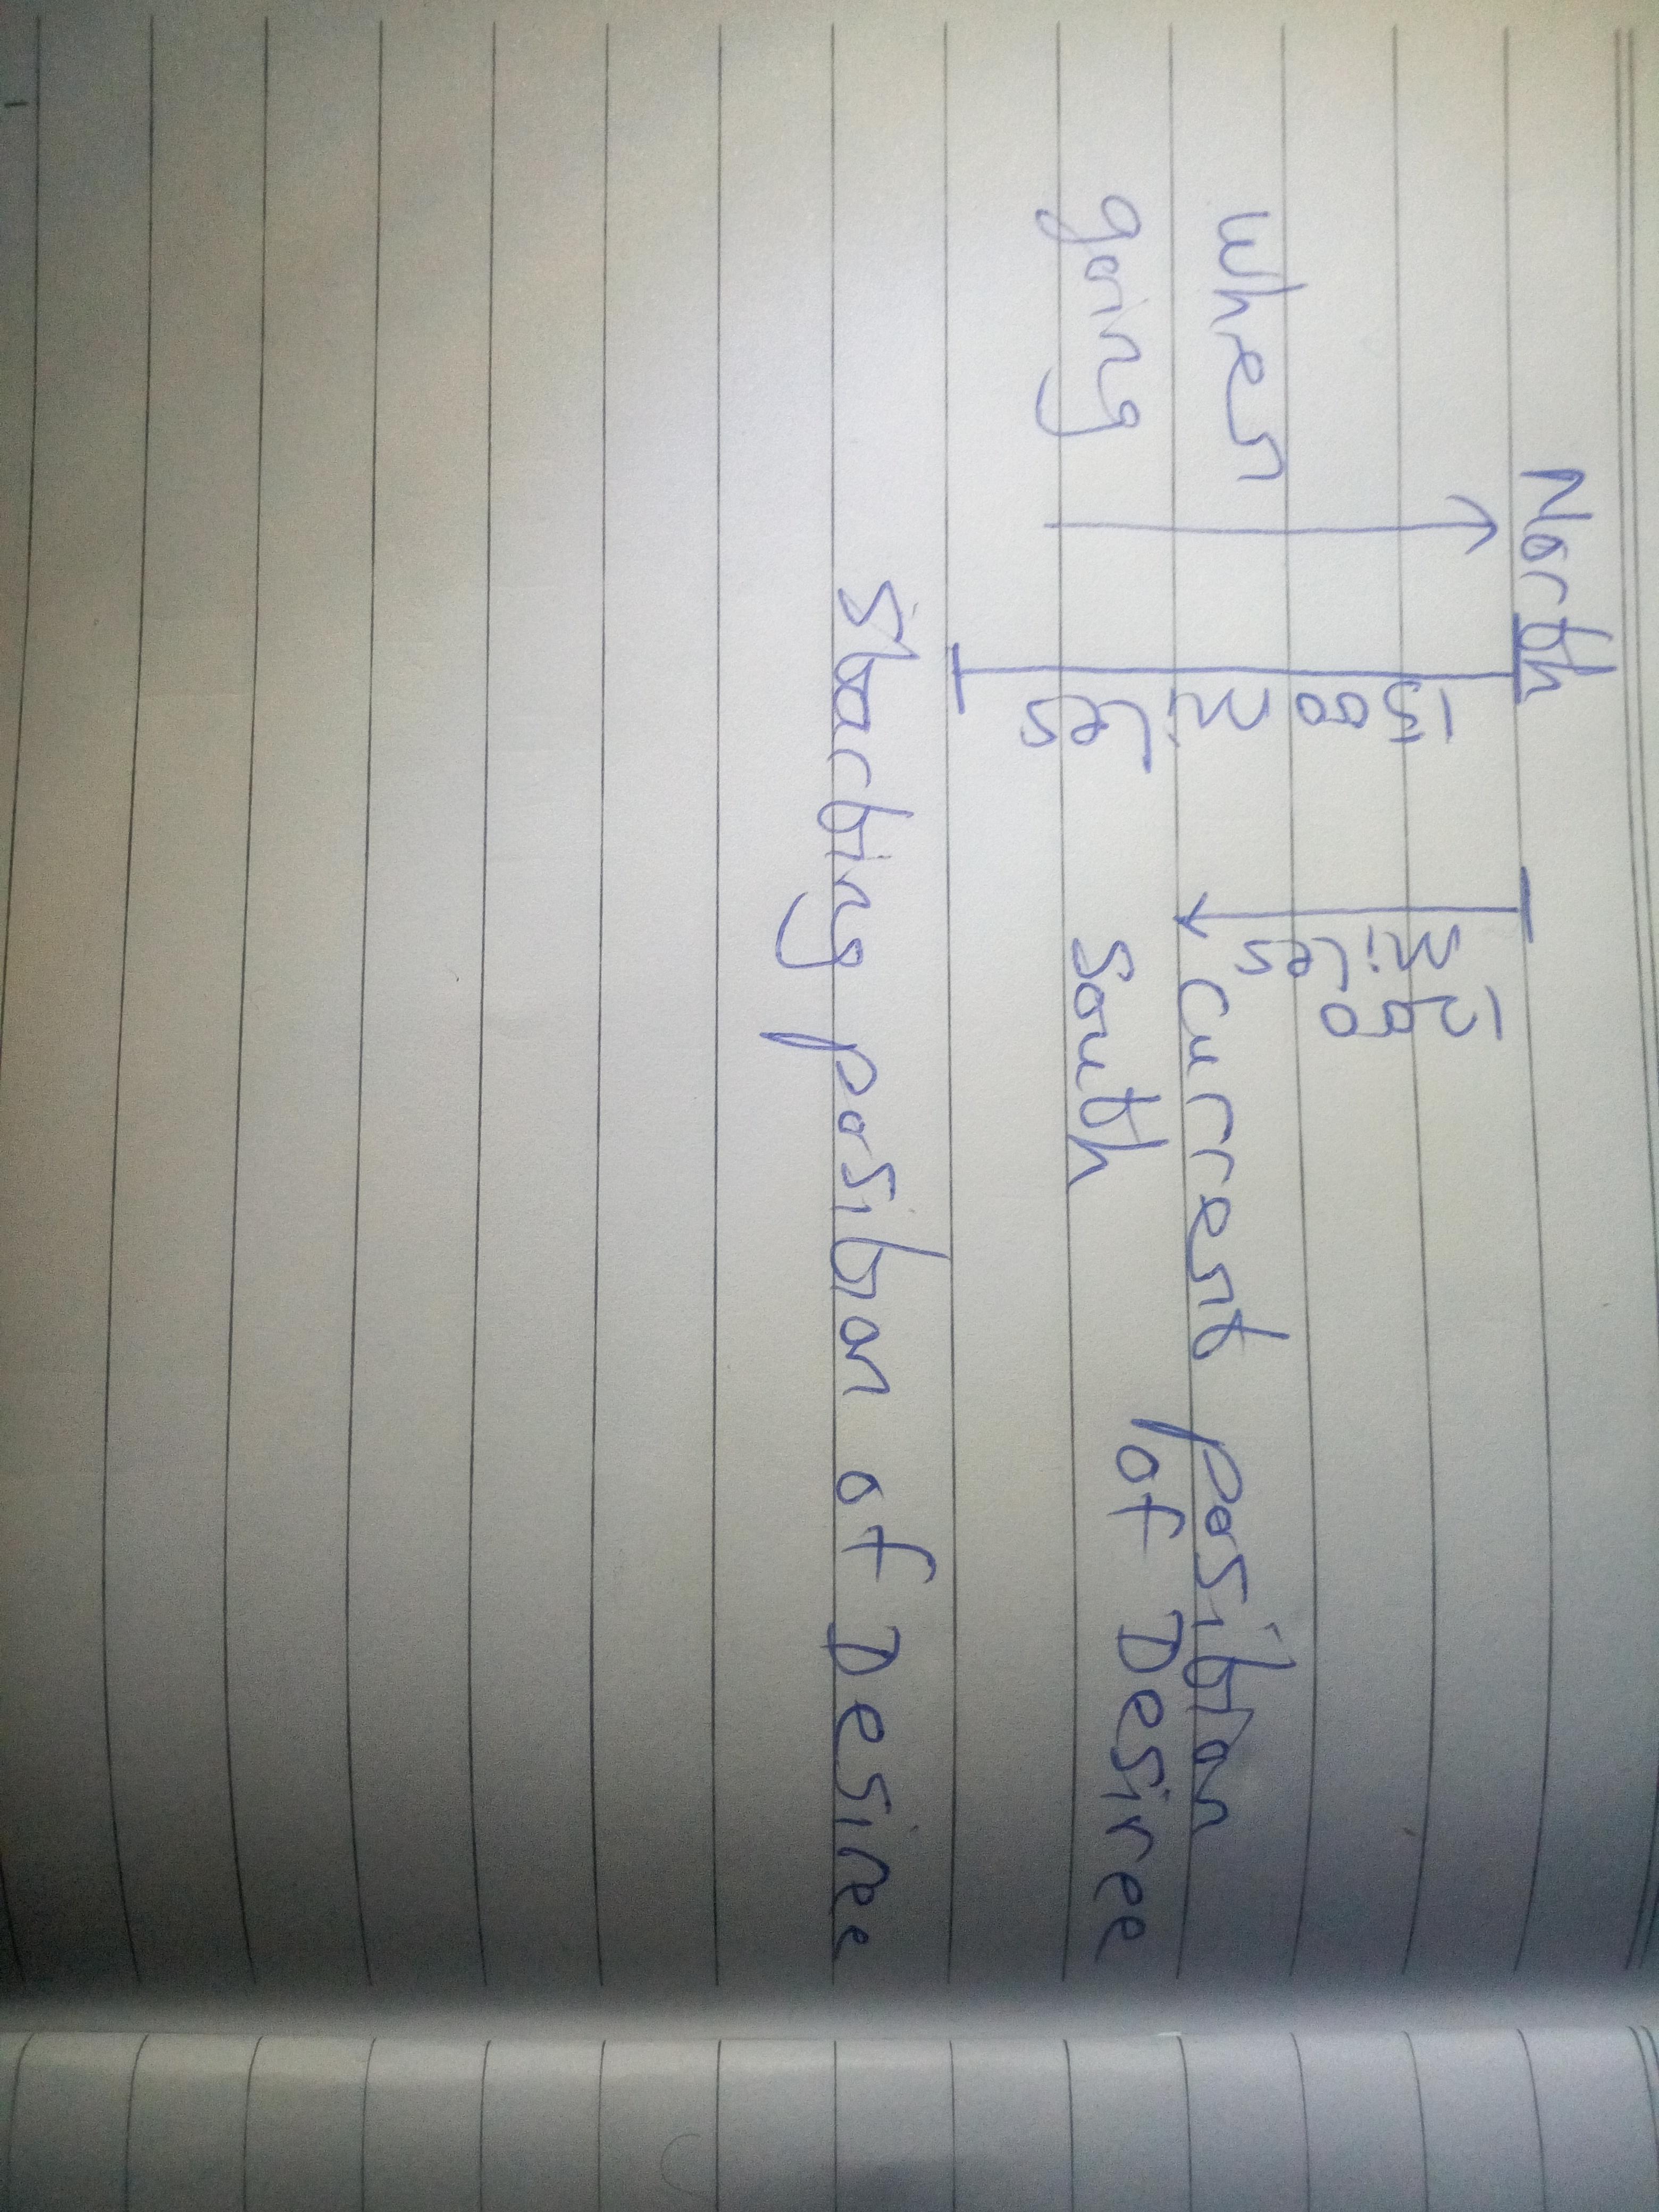 North
Miles
Miles
When
going
Current position
of Desiree
South
Starting position of Desiree